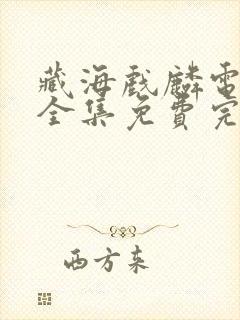 藏海戏麟電
全集免費完
西方来